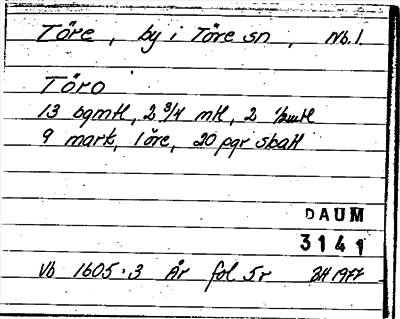 Töre, by i Töre sn, Nb.l.
Töro
13 bgmtl, 2 3/4 mtl, 2 1/2mtl
9 mark, 1 öre, 20 pgr skatt
DAUM
3141
Vb 1605:3 År fol 5r 1977